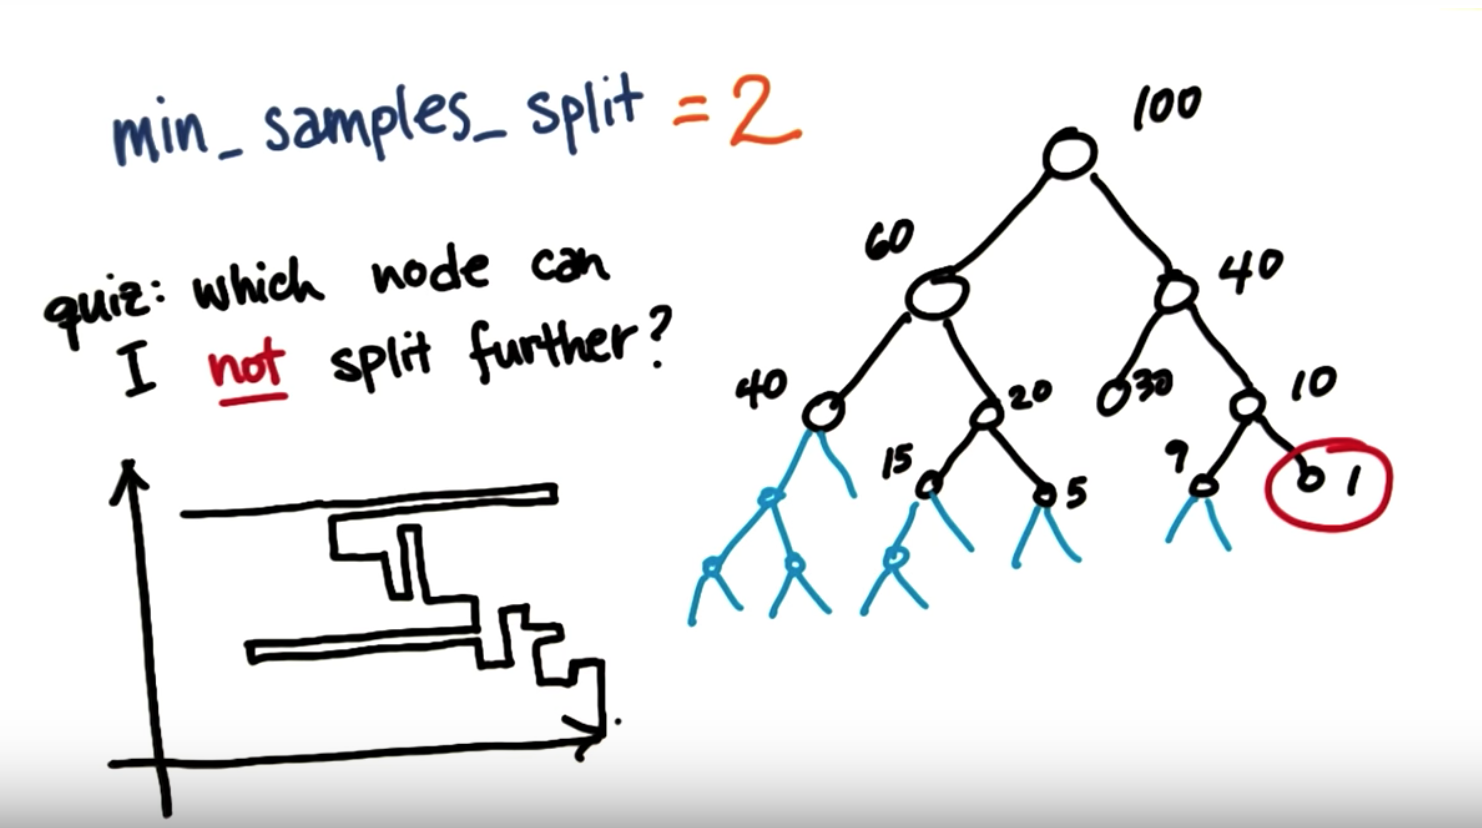 min_samples_split = 2
quiz: which node can
I not split further?
100
60
40
40
20
30
10
15
5
9
1